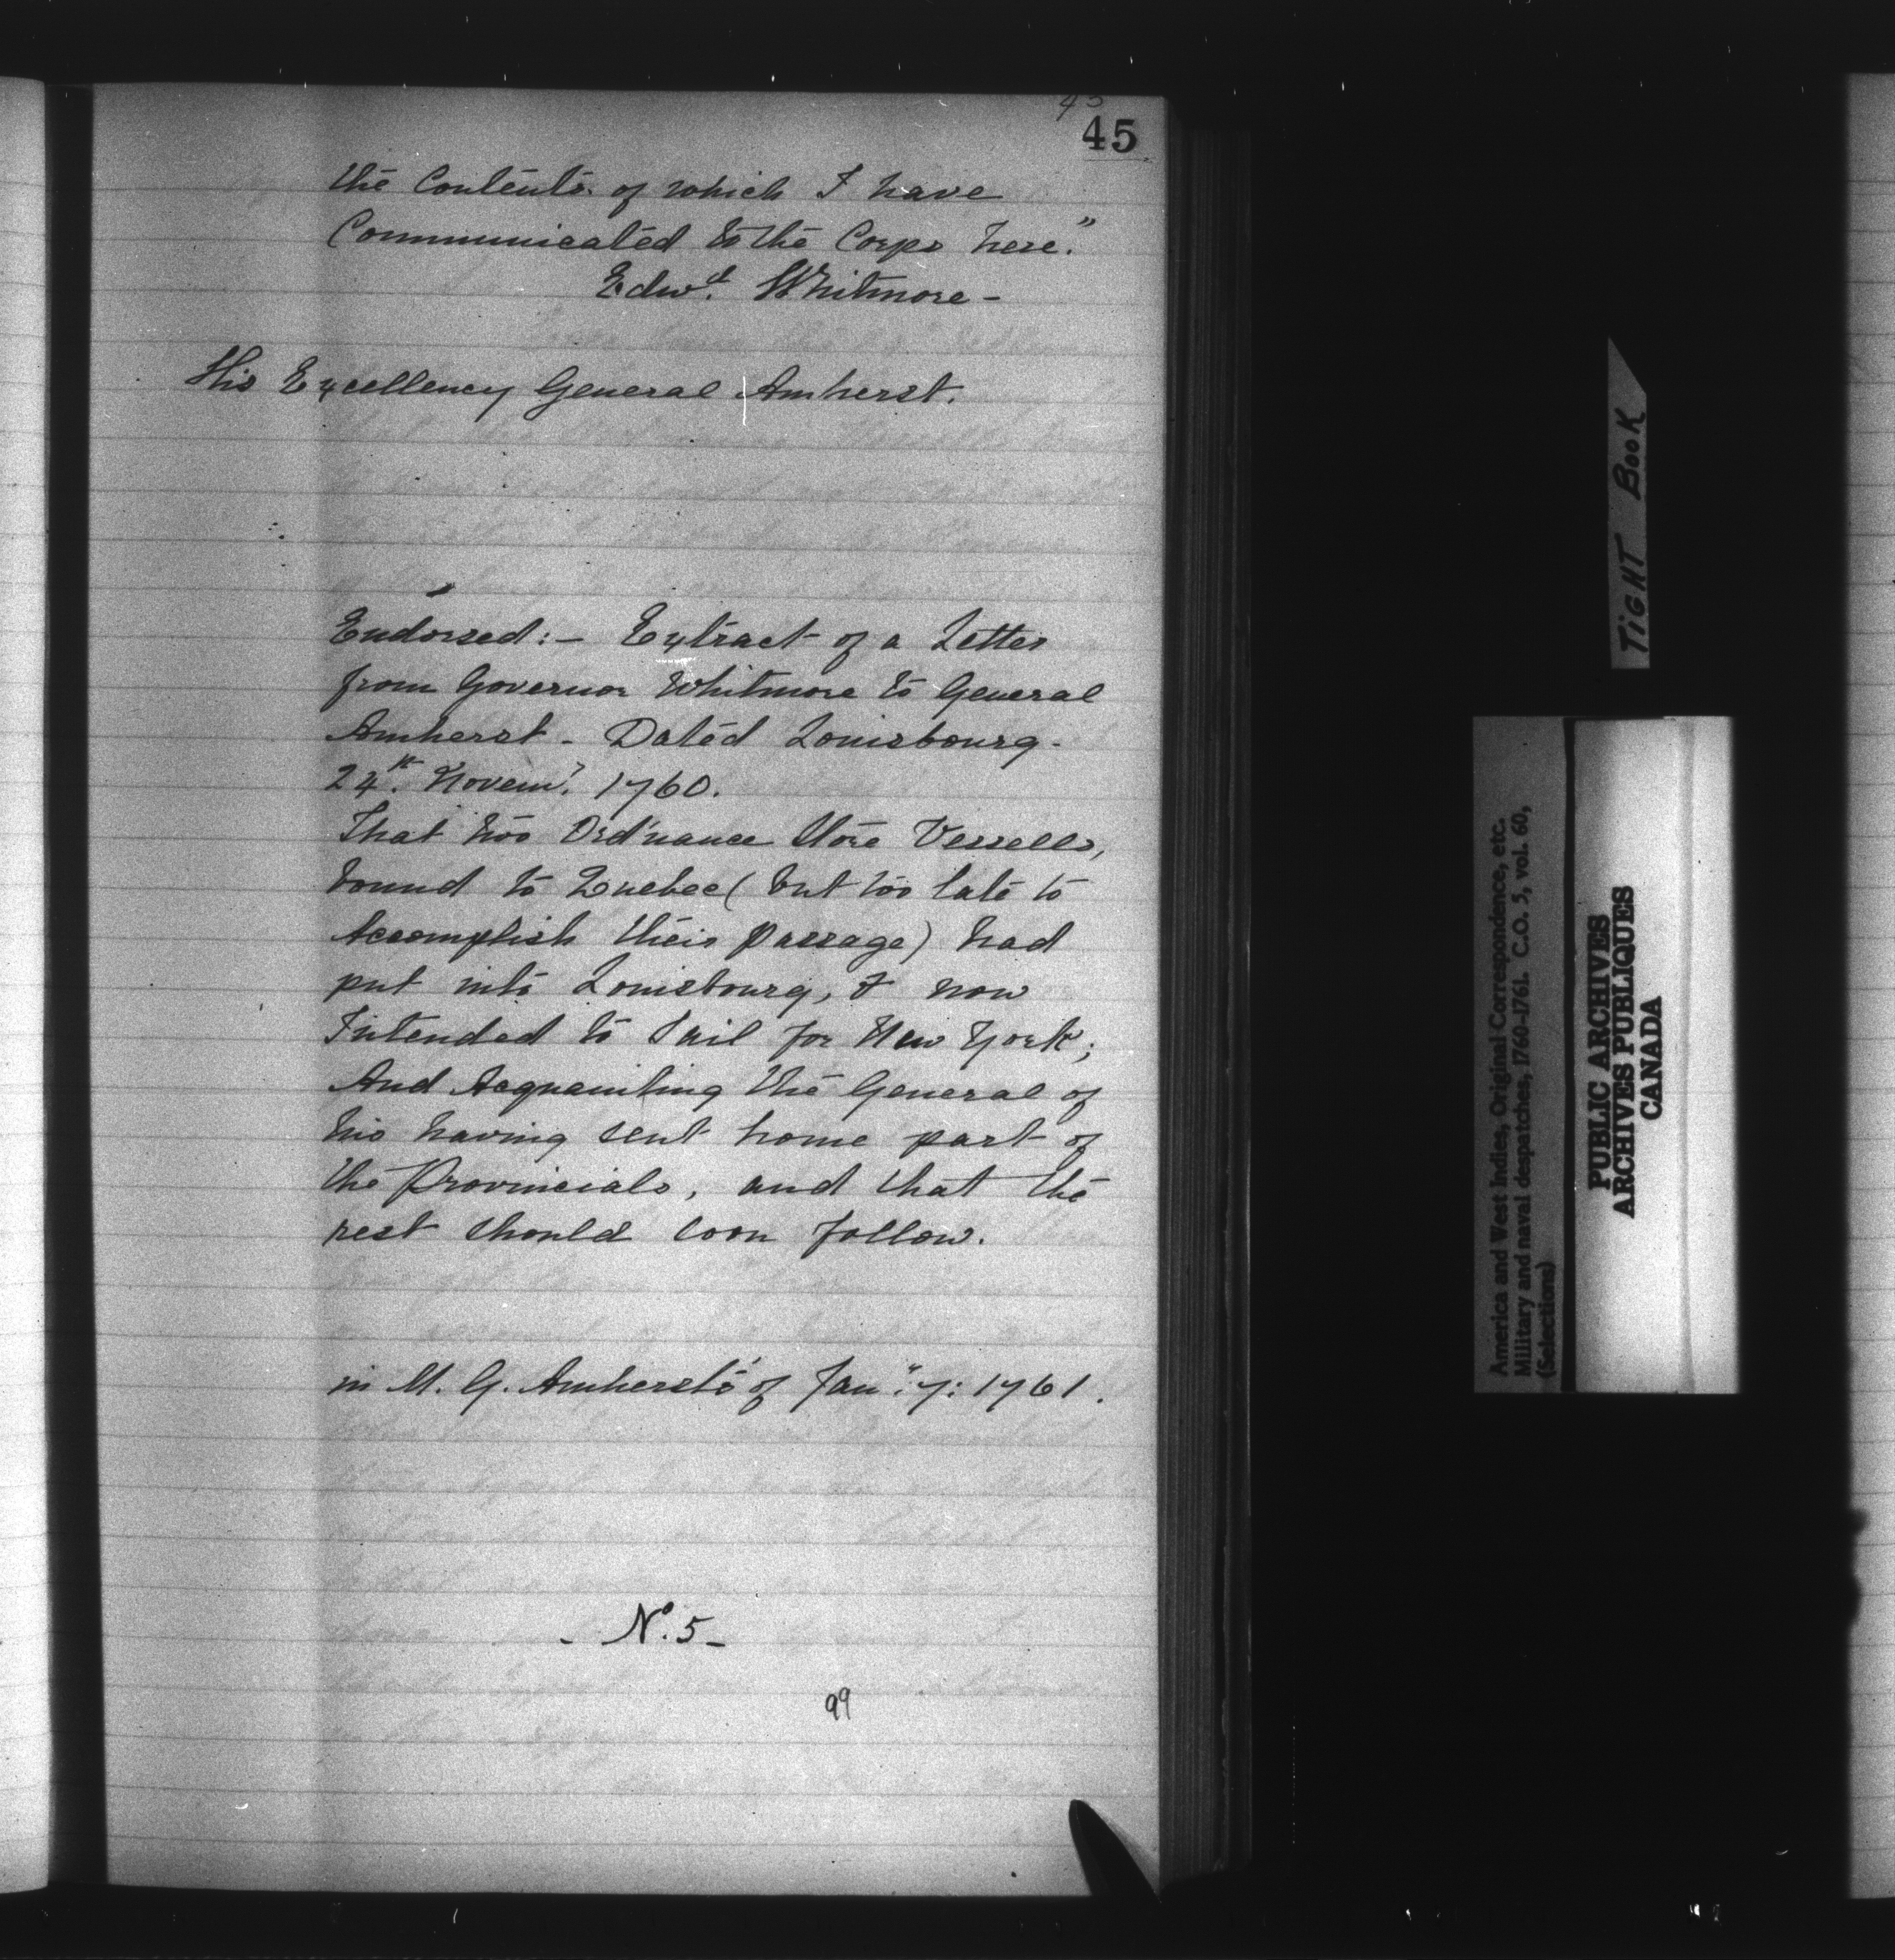 45
45
the Contents of which I have
Communicated to the Corps here."
Edwd. Whitmore -
His Excellency General Amherst.
Endorsed:- Extract of a Letter
from Governor Whitmore to General
Amherst - Dated Louisbourg -
24th. Novemr. 1760.
That two Ord'nance Store Vessells,
bound to Quebec (but too late to
Accomplish their passage) had
put into Louisbourg, & now
Intended to Sail for New York;
And Acquainting the General of
his having sent home part of
the Provincials, and that the
rest should soon follow.
in M. G. Amherst's of Jany. 7: 1761.
- No. 5 -
99
TIGHT BOOK
America and West Indies, Original Correspondence, etc.
Military and naval despatches, 1760-1761. C.O. 5, vol. 60,
(Selections)
PUBLIC ARCHIVES
ARCHIVES PUBLIQUES
CANADA